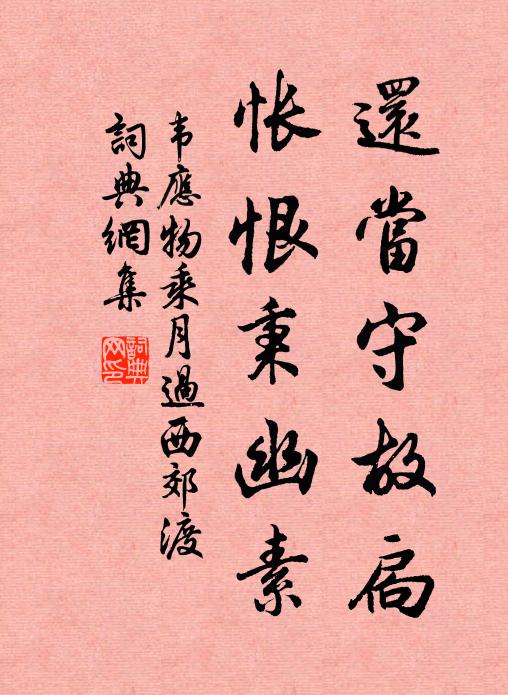 還當守故扃
悵恨秉幽素
韦應物乘月過西郊渡
詞典網集
詞典網印